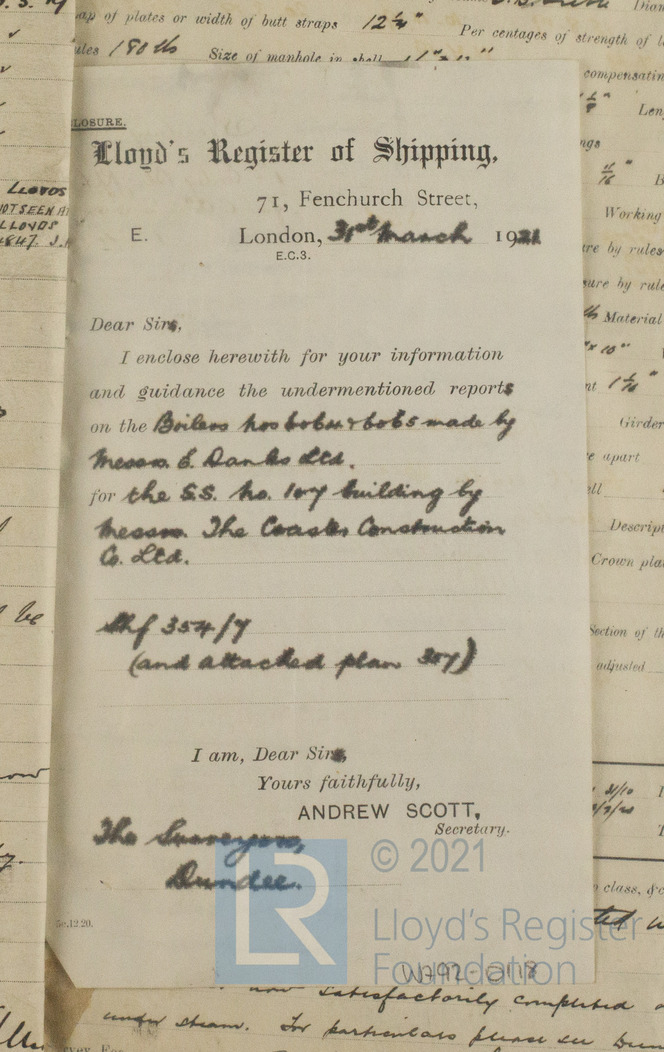 lap of plates or width of butt straps 12¼"
Per centages of strength of
rules 180 lb
Size of manhole in shell
compensatin
LOSURE.
Lloyd's Register of Shipping,
71, Fenchurch Street,
E.
London, 31st March 1921
E.C.3.
LLOYDS
NOT SEEN
LLOYDS
Working
re by rules
sure by rule
Material
Girder
e apart
ell
Descript
Crown pla
Section of th
adjusted
Dear Sirs,
I enclose herewith for your information
and guidance the undermentioned reports
on the Boilers nos 6064 & 6065 made by
Messrs. E. Danks Ltd.
for the S.S. No. 107 building by
Messrs. The Coaster Construction
Co. Ltd.
Shf 354/7
(and attached plan 307)
I am, Dear Sirs,
Yours faithfully,
ANDREW SCOTT,
Secretary.
The Surveyors,
Dundee.
5c.12.20.
LR
© 2021
Lloyd's Register
Foundation
W792-0118
class, &c
now satisfactorily completed
under steam. For particulars please see